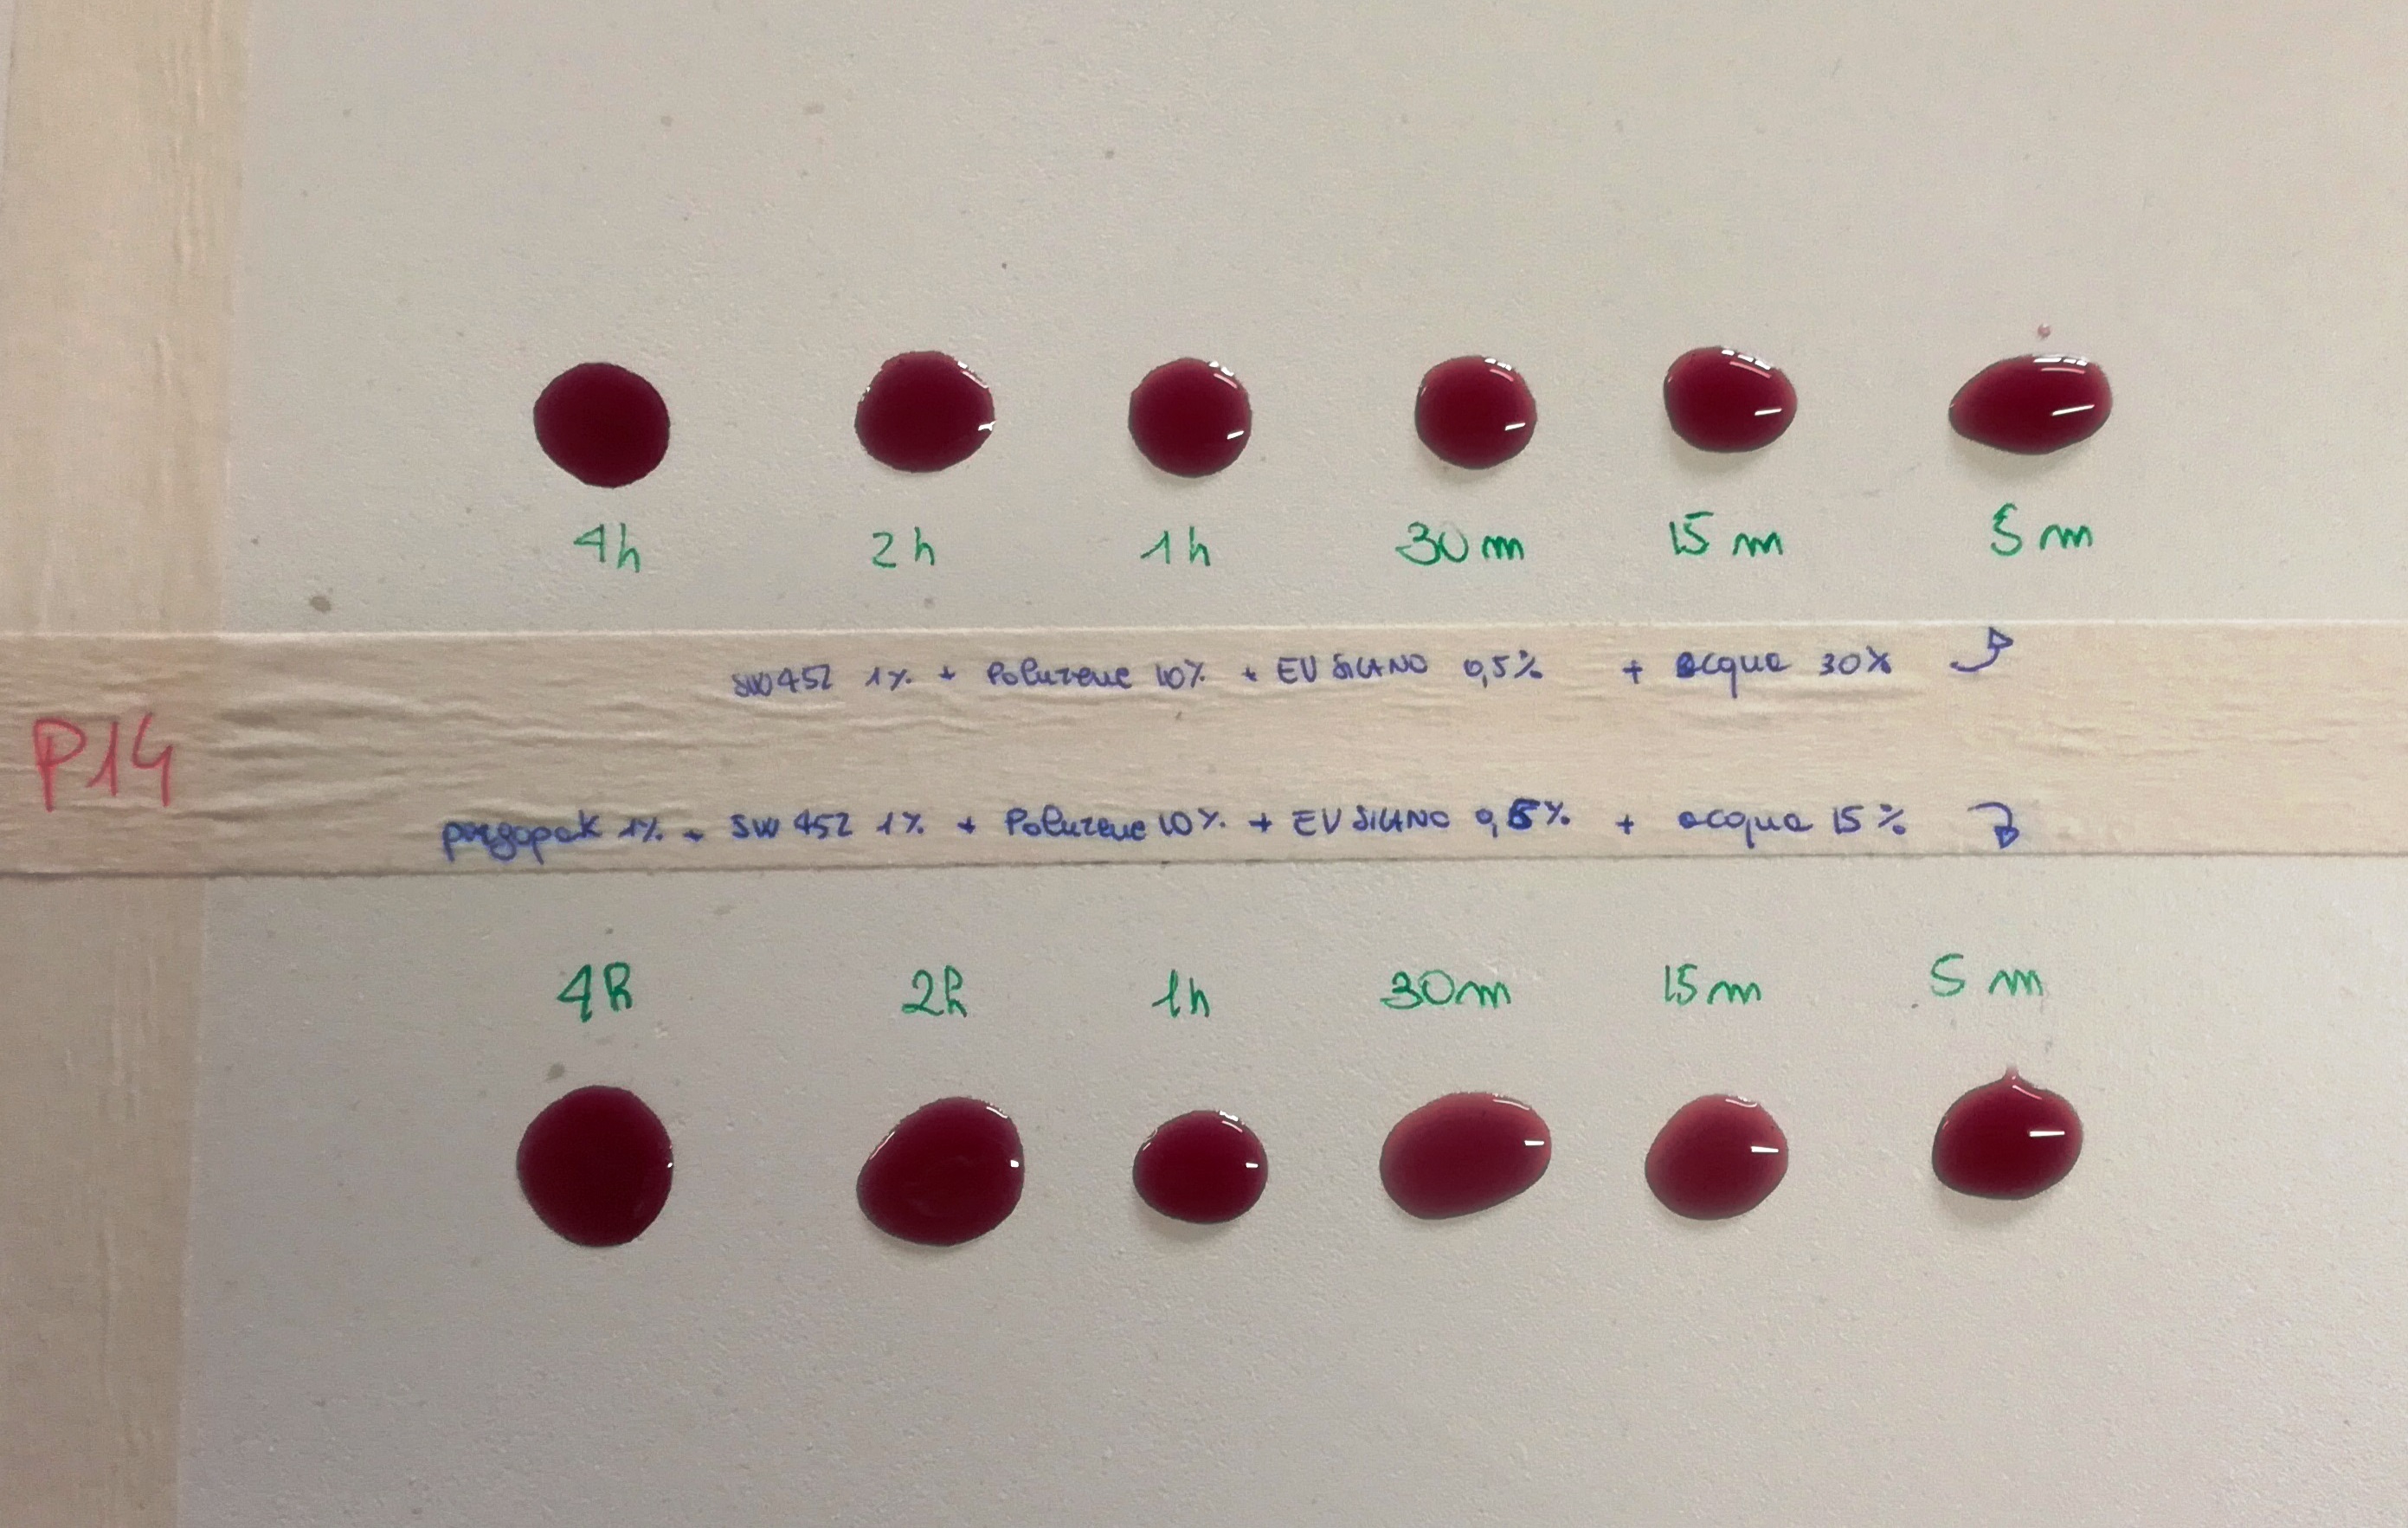 4h 2h 1h 30m 15m 5m
SW452 1% + Polurene 10% + EV SILANO 0,5% + acqua 30%
P14
pergopak 1% + SW 452 1% + Polurene 10% + EV SILANO 0,5% + acqua 15%
4h 2h 1h 30m 15m 5m